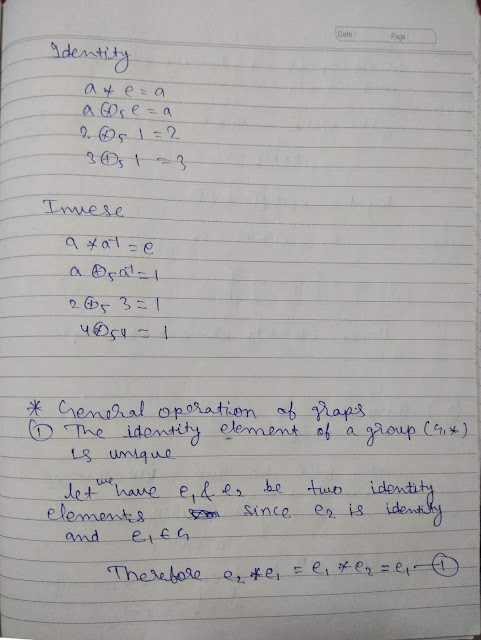 Date: Page:
Identity
a * e = a
a ⊗₅ e = a
2 ⊗₅ 1 = 2
3 ⊗₅ 1 = 3
Invese
a * a⁻¹ = e
a ⊗₅ a⁻¹ = 1
2 ⊗₅ 3 = 1
4 ⊗₅ 4 = 1
* General operation of graps
① The identity element of a group (G, *)
is unique
let we have e₁ & e₂ be two identity
elements since e₂ is identity
and e₁ ∈ G
Therefore e₂ * e₁ = e₁ * e₂ = e₁ — ①